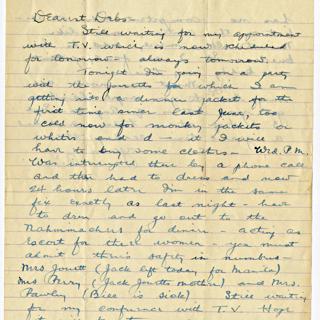 Dearest Debs-
Still waiting for my appointment
with T.V. which is now scheduled
for tomorrow - always tomorrow.
Tonight I'm going on a party
with the Jouetts for which I am
getting into a dinner jacket for the
first time since last June, too
cold now for monkey jackets or
whites and it I will
have to buy some clothes. Wed. P.M.
Was interrupted there by a phone call
and then had to dress and now
24 hours later I'm in the same
fix exactly as last night - have
to dress and go out to the
for dinner - acting as
escort for three women - you must
admit there's safety in numbers -
Mrs Jouett (Jack left today for Manila)
Mrs Perry (Jack Jouett's mother) and Mrs.
Pawley (Bill is sick) Still waiting
for my conference with T.V. Hope